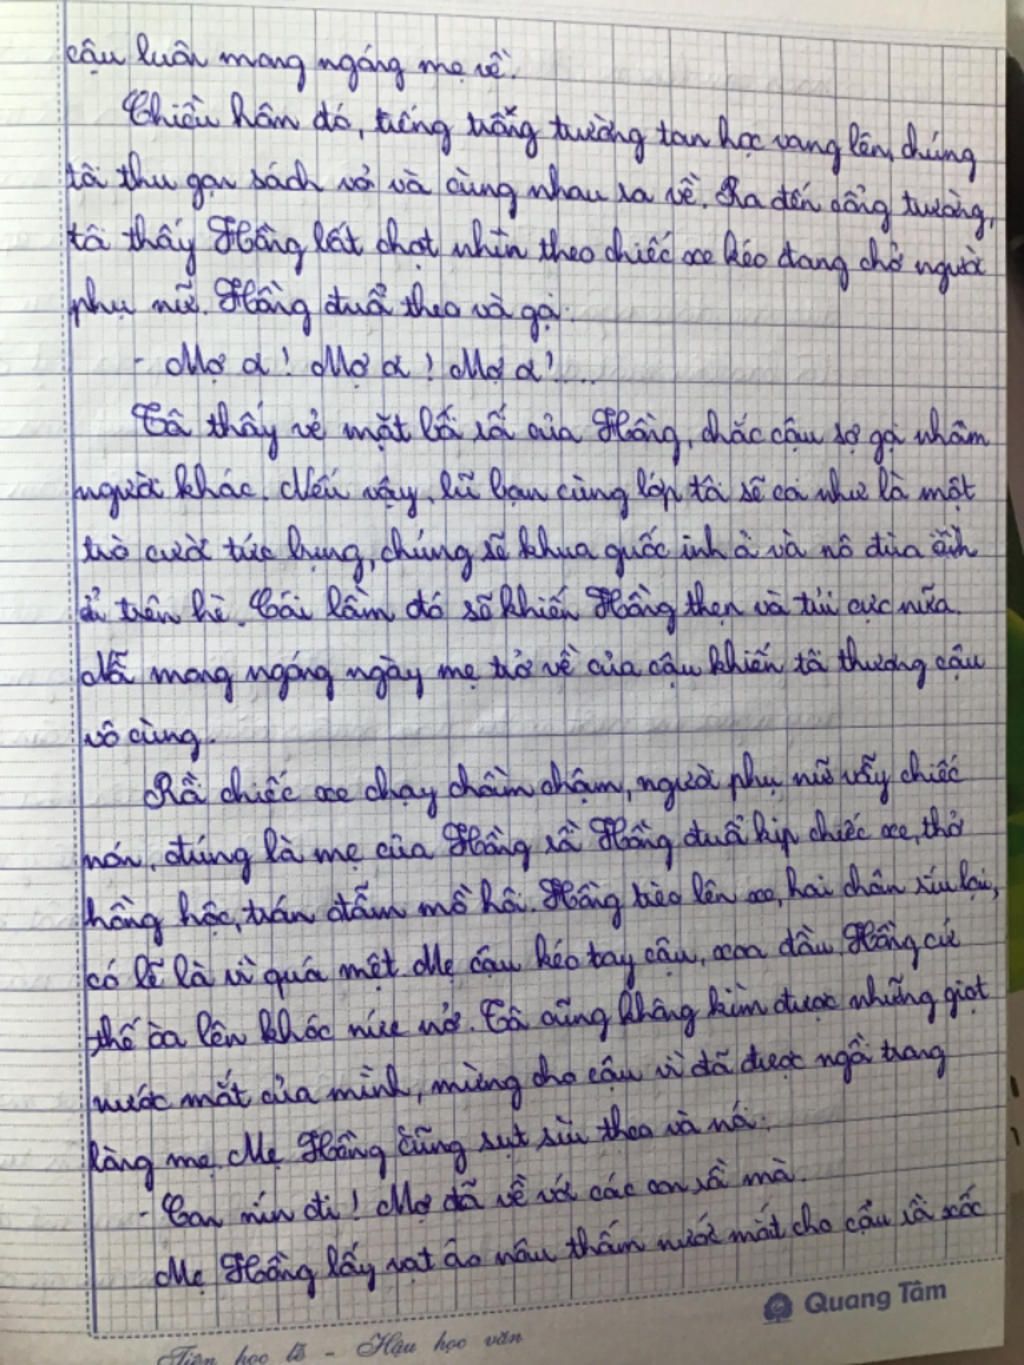 cậu luôn mong ngóng mẹ về.
Chiều hôm đó, tiếng trống trường tan học vang lên, chúng
tôi thu gọn sách vở và cùng nhau ra về. Ra đến cổng trường,
tôi thấy Hồng lất chợt nhìn theo chiếc xe kéo đang chở người
phụ nữ. Hồng đuổi theo và gọi:
- Mợ ơi! Mợ ơi! Mợ ơi!...
Tôi thấy vẻ mặt lối rối của Hồng, chắc cậu sợ gọi nhầm
người khác. Nếu vậy, lũ bạn cùng lớp tôi sẽ coi như là một
trò cười tức bụng, chúng sẽ khua guốc inh ỏi và nô đùa ầm
ĩ trên hè. Cái lầm đó sẽ khiến Hồng thẹn và tủi cực nữa.
Nỗi mong ngóng ngày mẹ trở về của cậu khiến tôi thương cậu
vô cùng.
Rồi chiếc xe chạy chầm chậm, người phụ nữ vẫy chiếc
nón, đúng là mẹ của Hồng rồi Hồng đuổi kịp chiếc xe, thở
hồng hộc, trán đẫm mồ hôi. Hồng trèo lên xe, hai chân ríu lại,
có lẽ là vì quá mệt. Mẹ cậu kéo tay cậu, xoa đầu, Hồng cứ
thế òa lên khóc nức nở. Tôi cũng không kìm được những giọt
nước mắt của mình, mừng cho cậu vì đã được ngồi trong
lòng mẹ. Mẹ Hồng cũng sụt sùi theo và nói:
- Con nín đi! Mợ đã về với các con rồi mà.
Mẹ Hồng lấy vạt áo nâu thấm nước mắt cho cậu rồi xốc
Quang Tâm
Tiên học lễ - Hậu học văn